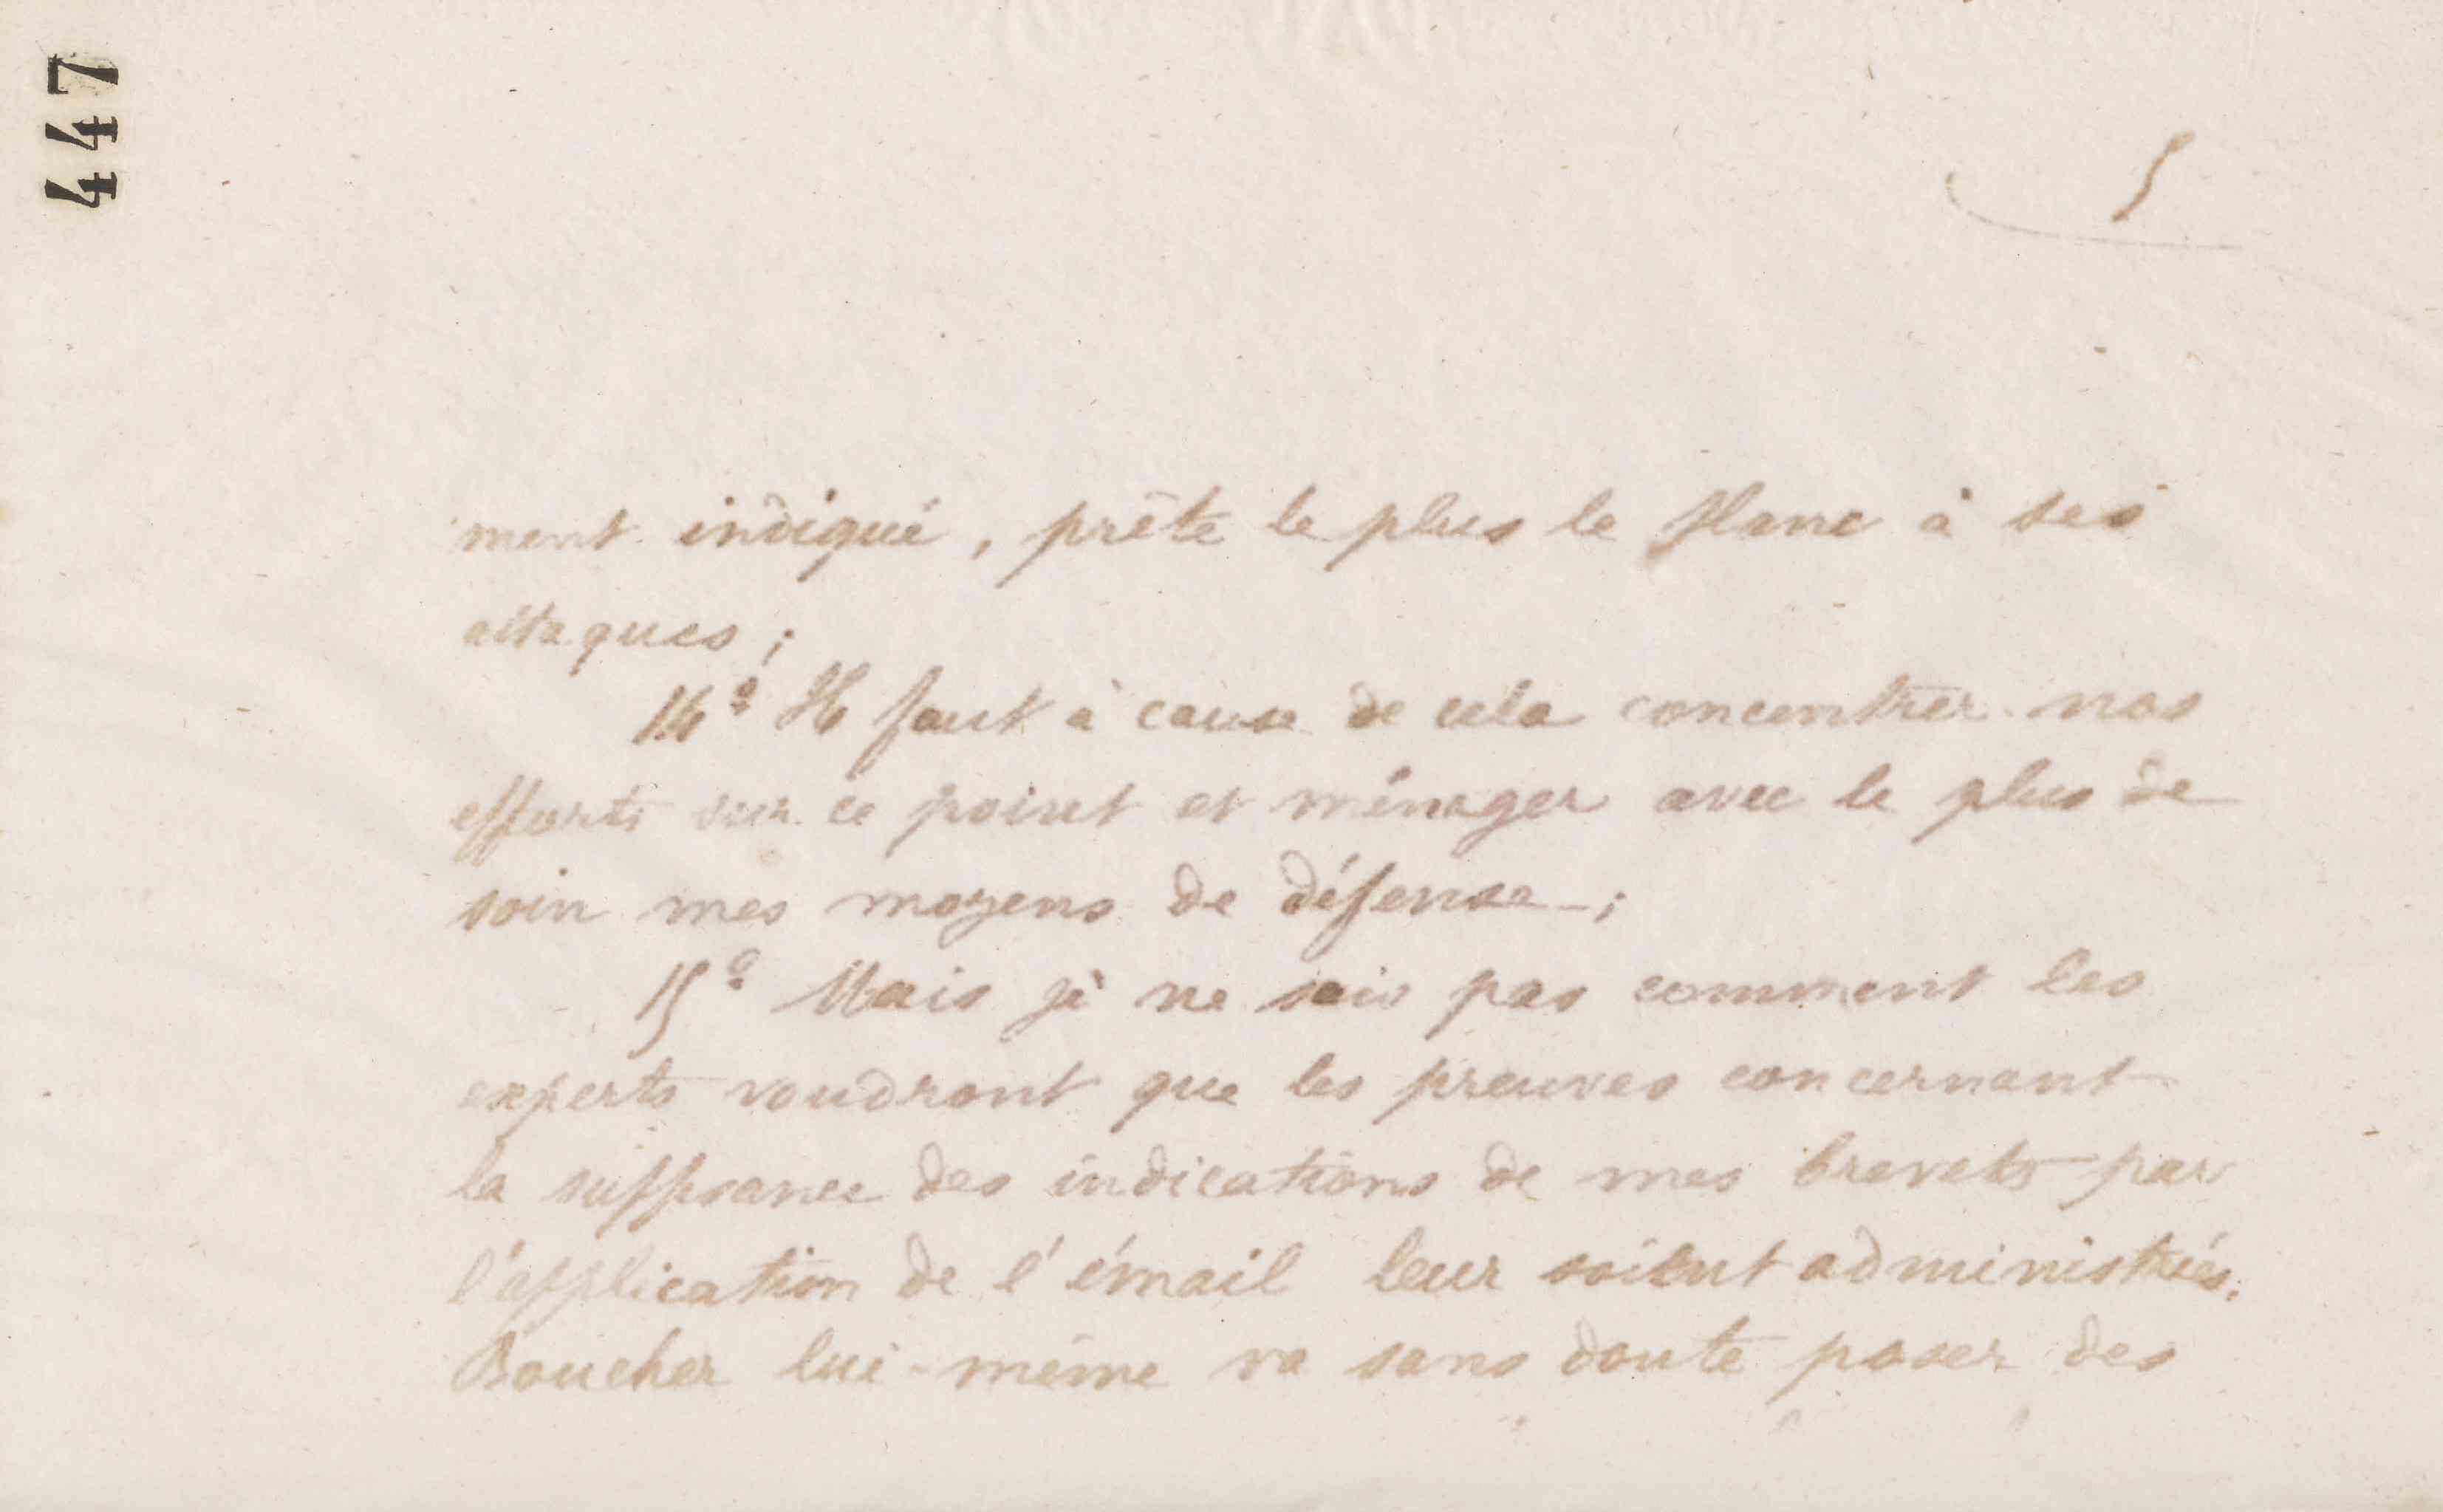 447
5
ment indiqué, prête le plus le flanc à ses
attaques;
14° Il faut à cause de cela concentrer nos
efforts sur ce point et ménager avec le plus de
soin mes moyens de défense;
15° Mais je ne sais pas comment les
experts voudront que les preuves concernant
la suffisance des indications de mes brevets par
l'application de l'émail leur soient administrés.
Boucher lui-même va sans doute poser des